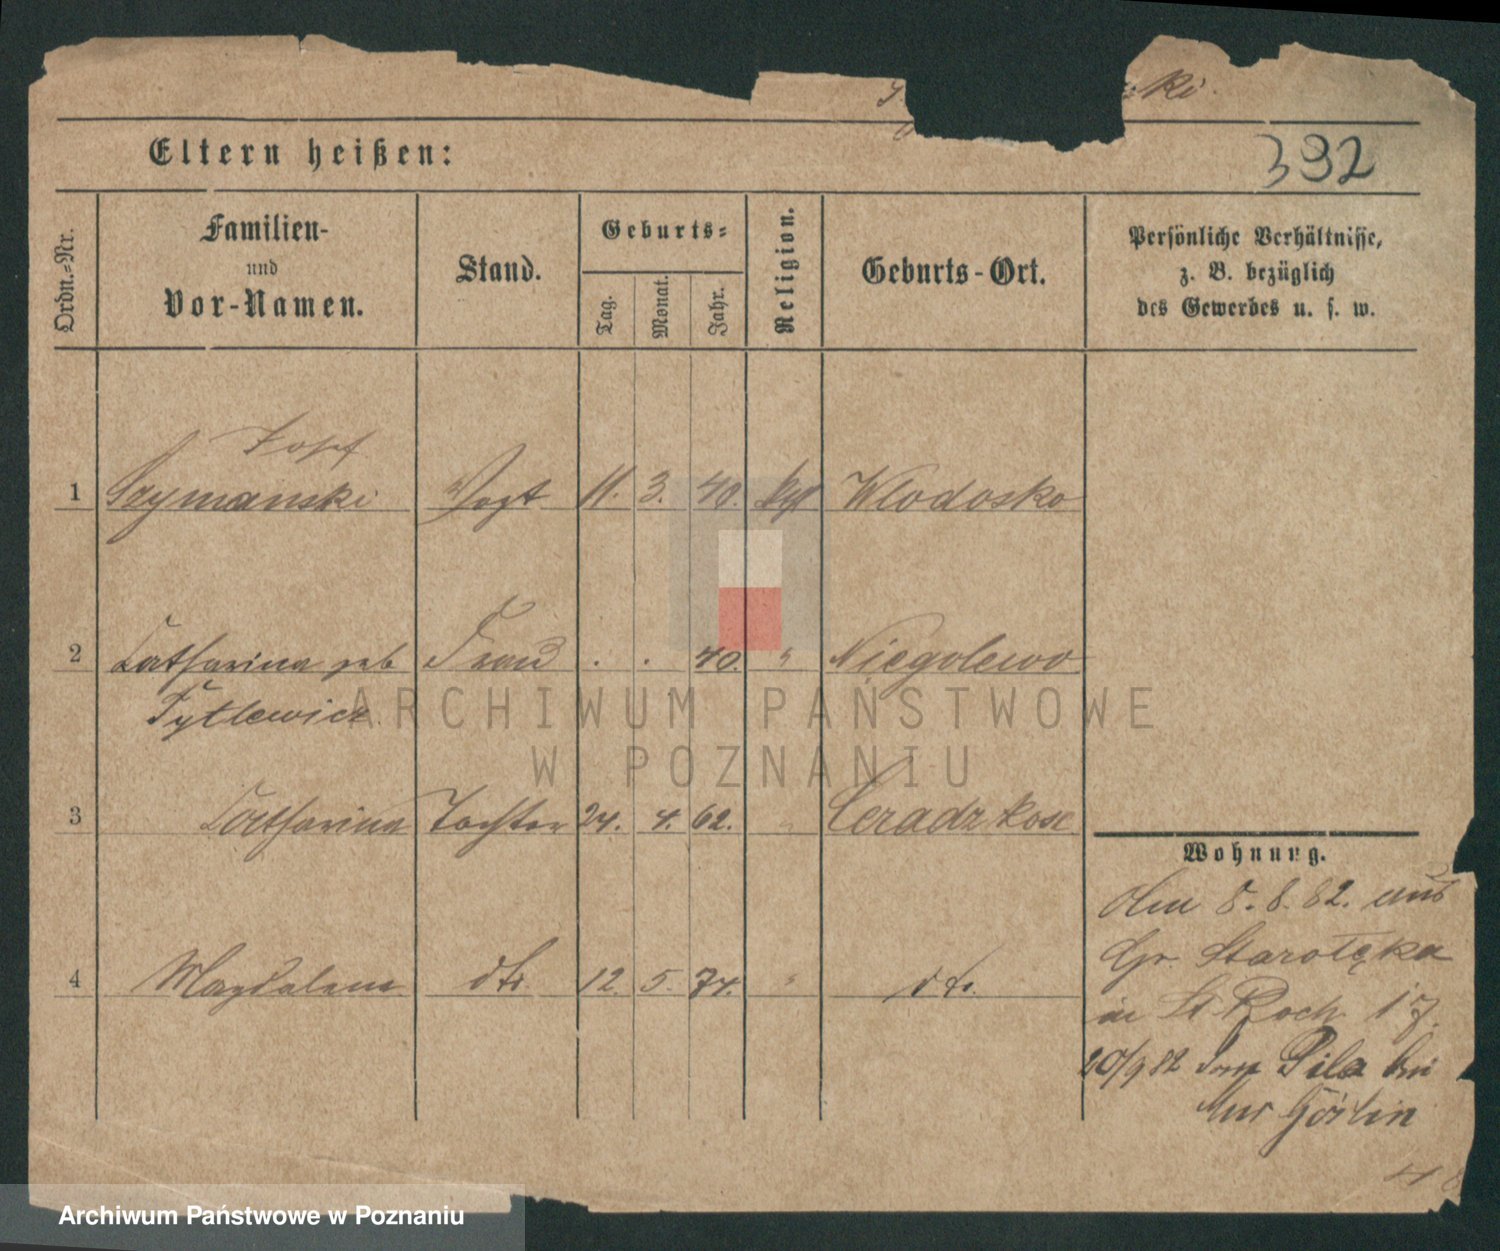 ski.
Eltern heißen:
392
Ordn.-Nr.
Familien-
und
Vor-Namen.
Stand.
Geburts-
Tag.
Monat.
Jahr.
Religion.
Geburts-Ort.
Persönliche Verhältnisse,
z. B. bezüglich
des Gewerbes u. s. w.
Josef
1 Szymanski Vogt 11. 3. 40. kath Wlodosko
2 Catharina geb Frau . . 40. " Niegolewo
Tytlewicz
3 Catharina Tochter 24. 4. 62. " Ceradz kosc
4 Magdalena dto 12. 5. 74. " dto.
Wohnung.
Am 5. 8. 82. aus
Gr. Starolęka
in St Roch 17.
20/9 82 Dom Pila bei
Mur Goslin
ARCHIWUM PAŃSTWOWE
W POZNANIU
Archiwum Państwowe w Poznaniu